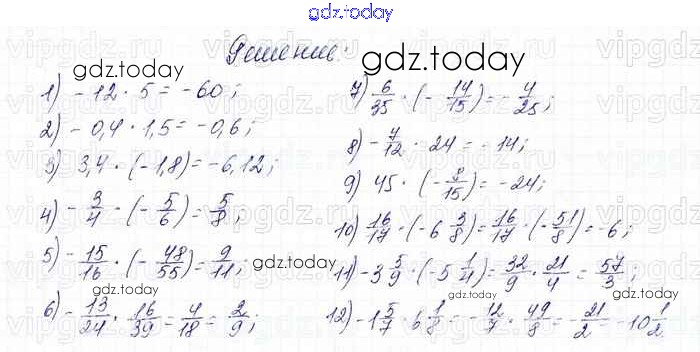 gdz.today
Решение:
gdz.today
gdz.today
1) - 12 · 5 = - 60;
2) - 0,4 · 1,5 = - 0,6;
3) 3,4 · (-1,8) = - 6,12;
4) - 3/4 · (- 5/6) = 5/8;
5) - 15/16 · (- 48/55) = 9/11;
6) - 13/24 · 16/39 = 4/18 = 2/9;
7) 6/35 · (- 14/15) = - 4/25;
8) - 7/12 · 24 = - 14;
9) 45 · (- 8/15) = - 24;
10) 16/17 · (- 6 3/8) = 16/17 · (- 51/8) = - 6;
11) - 3 5/9 · (- 5 1/4) = 32/9 · 21/4 = 57/3;
12) - 1 5/7 · 6 1/8 = - 12/7 · 49/8 = - 21/2 = - 10 1/2.
gdz.today
gdz.today
gdz.today